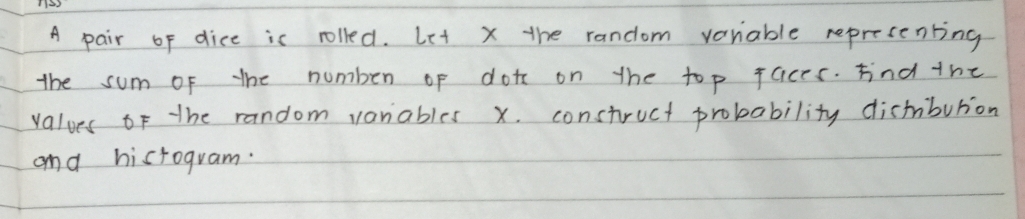 A pair of dice is rolled. Let X the random variable representing
the sum of the number of dots on the top faces. Find the
values of the random variables X. construct probability distribution
and histogram.